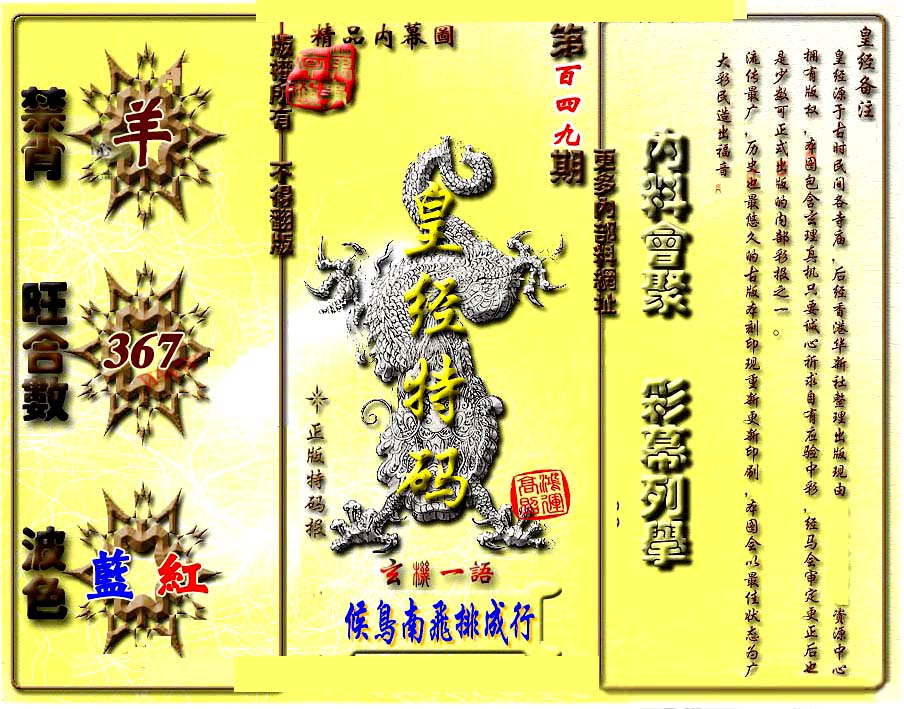 精品内幕圖
版權所有 不得翻版
禁肖
羊
旺合數
367
波色
藍 紅
第百四九期
更多内部料網址
皇经特码
正版特码报
鴻運高照
玄機一語
候鳥南飛排成行
内料會聚 彩幕列舉
皇经备注
皇经源于古时民间各寺庙，后经香港华新社整理出版现由 资源中心
拥有版权，本图包含玄理真机只要诚心祈求自有应验中彩，经马会审定更正后也
是少数可正式出版的内部彩报之一。
流传最广，历史也最悠久的古版本刻印现重新更新印刷，本图会以最佳状态为广
大彩民造出福音